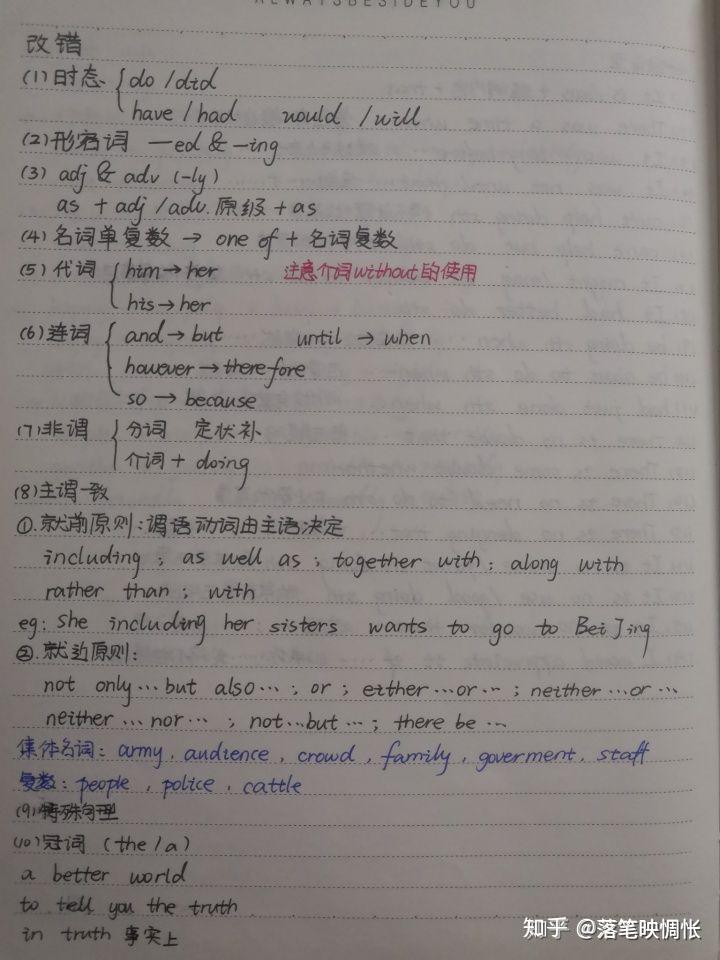 ALWAYSBESIDEYOU
改错
(1) 时态 { do / did
have / had would / will
(2) 形容词 —ed & —ing
(3) adj & adv (-ly)
as + adj / adv. 原级 + as
(4) 名词单复数 → one of + 名词复数
(5) 代词 { him → her 注意介词without的使用
his → her
(6) 连词 { and → but until → when
however → therefore
so → because
(7) 非谓 { 分词 定状补
介词 + doing
(8) 主谓一致
①.就前原则:谓语动词由主语决定
including ; as well as ; together with ; along with
rather than ; with
eg: she including her sisters wants to go to BeiJing
②.就近原则:
not only … but also … ; or ; either … or … ; neither … or …
neither … nor … ; not … but … ; there be …
集体名词: army , audience , crowd , family , goverment , staff
复数: people , police , cattle
(9) 特殊句型
(10) 冠词 (the / a)
a better world
to tell you the truth
in truth 事实上
知乎 @落笔映惆怅